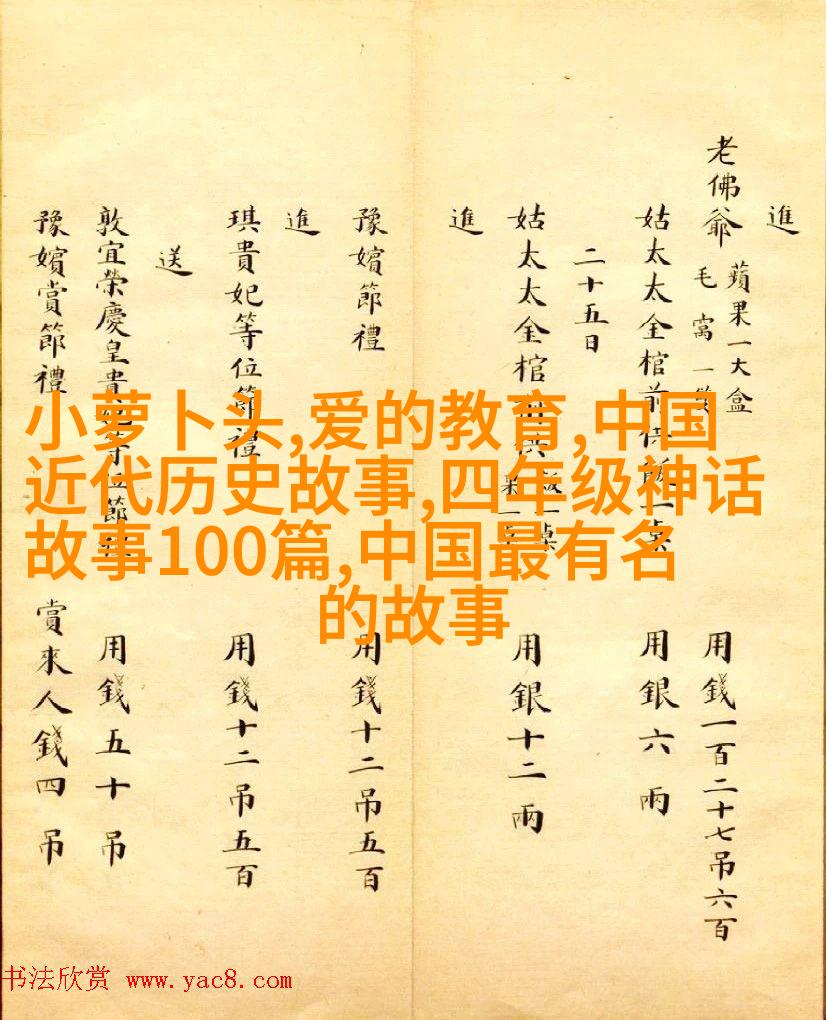 進
老佛爺 蘋果一大盒
毛窩一雙
用錢一百二十七吊六百
姑太太金棺前供飯一桌 用銀六兩
二十五日
姑太太金棺前供飯一桌
果一桌
用銀十二兩
進
豫嬪節禮 用錢十二吊五百
進
琪貴妃等位節禮 用錢十二吊五百
送
敦宜榮慶皇貴妃等位節禮 用錢五十吊
豫嬪賞節禮 賞來人錢四吊
小萝卜头,爱的教育,中国
近代历史故事,四年级神话
故事100篇,中国最有名
的故事
书法欣赏 www.yac8.com